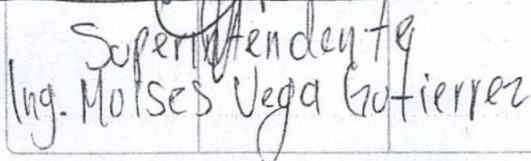 Superintendente
Ing. Moises Vega Gutierrez